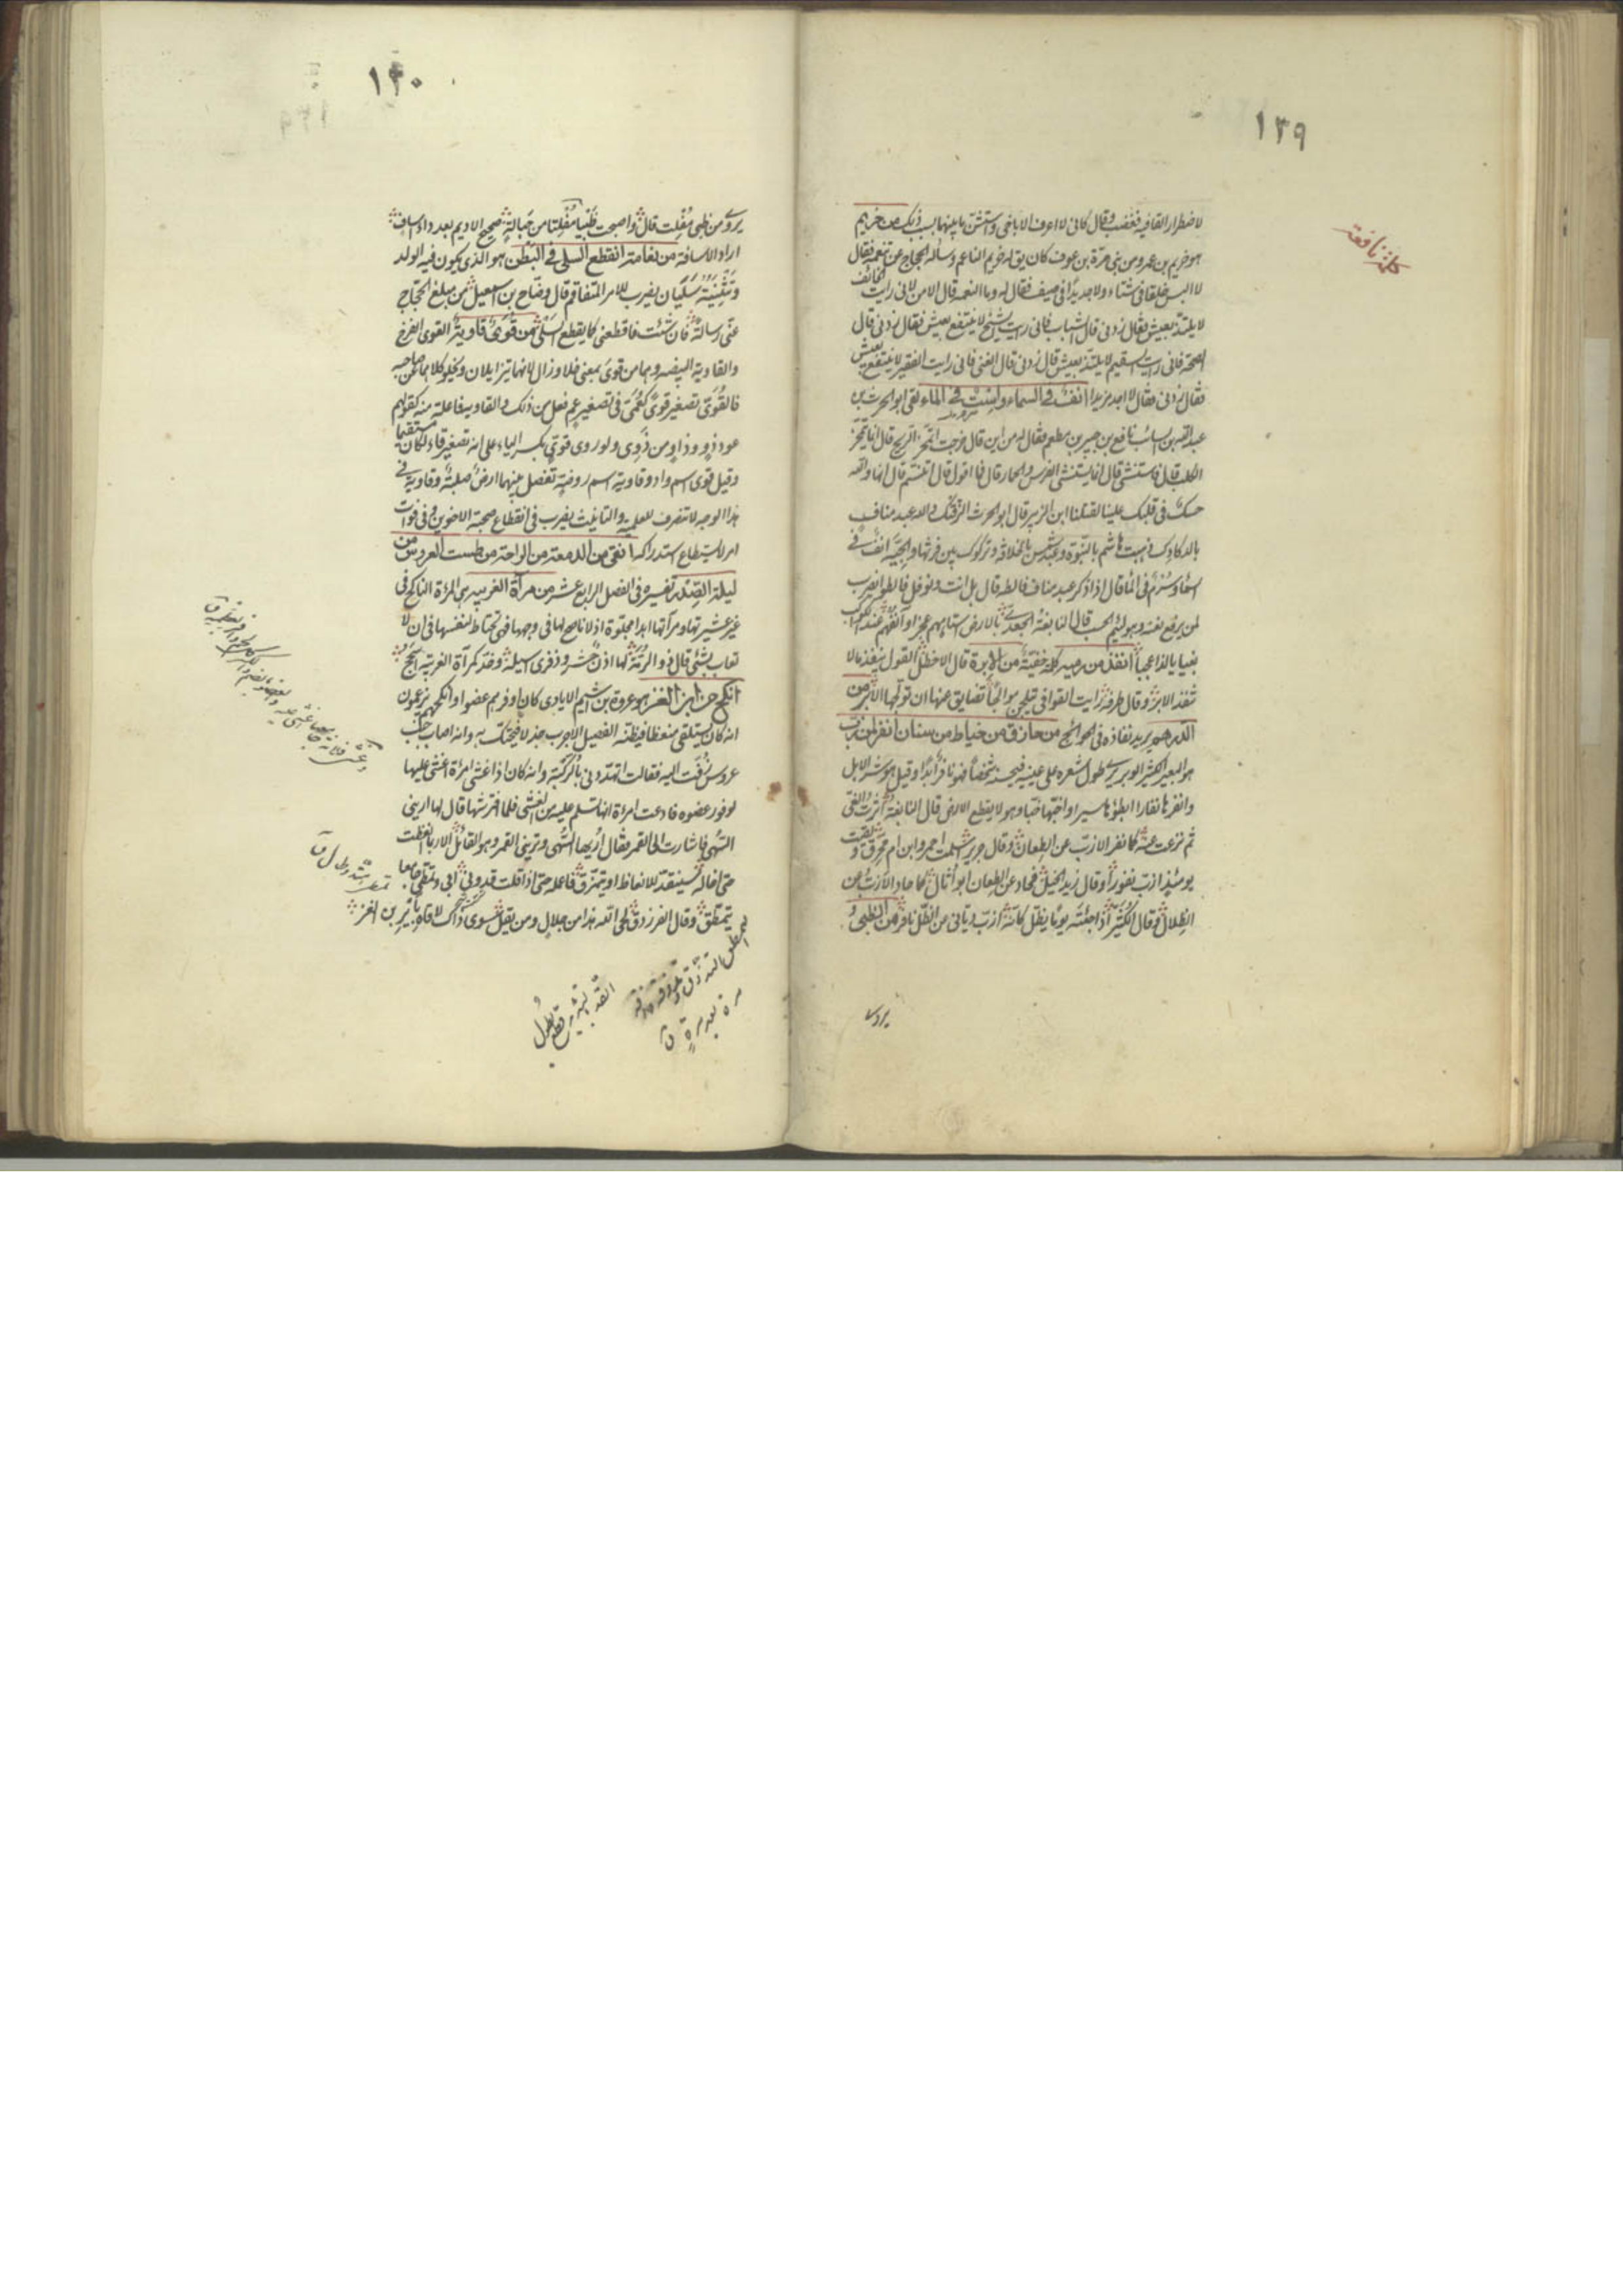 ١٣٩
كلمة نافعة
لاضطرار القافية فغضب وقال كانى لا اعرف الا باغى واستشن ما بينهما بسبب ذلك من خريم
هو خريم بن عمرو من بنى مرّة بن عوف كان يق له خريم الناعم وساله الحجاج عن تنعمه فقال
لا البس خلقا فى شتاء ولا جديدا فى صيف فقال له وما النعمه قال الامن لانى رايت الخائف
لا يلتذ بعيش فقال زدنى قال الشباب فانى رايت الشيخ لا ينتفع بعيش فقال زدنى قال
الصحة فانى رايت السقيم لا يلتذ بعيش قال زدنى قال الغنى فانى رايت الفقير لا ينتفع بعيش
فقال زدنى فقال لا اجد مزيدا انف فى السماء واست فى الماء لقى ابو الحرث بن
عبد الله بن السائب نافع بن جبير بن مطعم فقال له من اين قال خرجت اتمخر الريح قال انما يتمخر
الكلب قال فاستنشى قال انما يستنشى الفرس والحمار قال فما اقول قال اتنسم قال انها والله
حسك فى قلبك علينا لقتلنا ابن الزبير قال ابو الحرث الزقتك والله عبد مناف
بالدكادك ذهبت هاشم بالنبوة وعبد شمس بالخلافة وتركوك بين فرثها والجيّة انف فى
السماء وسرم فى الماء قال اذا ذكر عبد مناف فالطه قال بل انت ونوفل فالطوا يضرب
لمن يرفع نفسه وهو لئيم الحسب قال النابغة الجعدى بالارض استاههم عجزا وآنفهم عند الكواكب
بغيا يا لذا عجبا انفذ من رميه كلمة خفيّة من الابرة قال الاخطل القول ينفذ ما لا
تنفذ الابر وقال طرفة رايت القوافى يتلجن موالجا تضايق عنها ان تولجها الابر من
الدرهم يريد نفاذه فى الحوائج من خازق من خياط من سنان انفر من ازب
هو البعير الكثير الوبر يرى طول شعره على عينيه فيحسبه شخصا فهو نافر ابدا وقيل هو شر الابل
وانفرها نفارا ابطؤها سيرا واخبها خببا وهو لا يقطع الارض قال النابغة اثرت الغى
ثم نزعت عنه كما نفر الازب عن الطعان وقال جرير
يومئذ ازب نفورا وقال زيد الخيل فحاد عن الطعان ابو اثال كما حاد الازب عن
الظلال وقال الكثير اذا جئته يوما يظل كانه ازب ديافى من الظل نافر من الظبى و
يروى
١٤٠
يروى من ظبى مفلت قال واصبحت ظبيا مفلتا من حبالة صحيح الاديم بعد داء اساف
اراد الاسافة من نعامة انقطع السلى فى البطن هو الذى يكون فيه الولد
وتثنيته سليان يضرب للامر المتفاقم قال وضاح بن اسمعيل من مبلغ الحجاج
عنى رسالة فان شئت فاقطعنى كما يقطع السلى من قوى قاوية القوى الفرخ
والقاوية البيضه وهما من قوى بمعنى خلا وزال لانهما يتزايلان ويخلو كلاهما عن صاحبه
فالقوىّ تصغير قوى كعمى فى تصغير عم فعل من ذلك والقاوية فاعلة منه كقولهم
عود ذو وذاو من ذوى ولو روى قوىّ بكسر الياء على انه تصغير قاو لكان مستقيما
وقيل قوى اسم واد وقاوية اسم روضة تفصل بينهما ارض صلبة وقاوية فى
هذا الوجه لا تنصرف للعلمية والتانيث يضرب فى انقطاع صحبة الاخوين وفى فوات
امر لا يستطاع استدراكه انقى من الدمعة من الراحة من طست العروس من
ليلة الصدر تفسيره فى الفصل الرابع عشر من مرآة الغريبه هى المراة الناكح فى
غير عشيرتها ومرآتها ابدا مجلوة اذ لا ناصح لها فى وجهها فهى تحتاط لنفسها فى ان لا
تعاب بشئ قال ذو الرمّة لها اذن حشر وذفرى اسيلة وخد كمرآة الغريبة اسجح
انكح من ابن الغز هو عروة بن اشيم الايادى كان اوفرهم عضوا وانكحهم يزعمون
انه كان يستلقى منعظا فيظنه الفصيل الاجرب جذلا فيحتك به وانه اصاب جنب
عروس زفّت اليه فقالت اتهددنى بالركبة وانه كان اذا غشى امراة اغشى عليها
لوفور عضوه فادعت امراة انها تسلم عليه من الغشى فلما افترشها قال لها ارينى
السهى فاشارت الى القمر فقال اريها السهى وترينى القمر وهو القائل الا ربما انعظت
حتى اخاله سينقد للانعاظ او يتمزق فاعمله حتى اذا قلت قد ونى ابى وتمطى جامعا
يتمطق وقال الفرزدق لحى الله هذا من حلال ومن يقل سوى ذاك لاقاه باير بن الغز